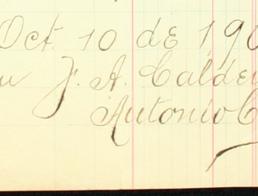 Oct 10 de 190
J. A. Calde
Antonio C